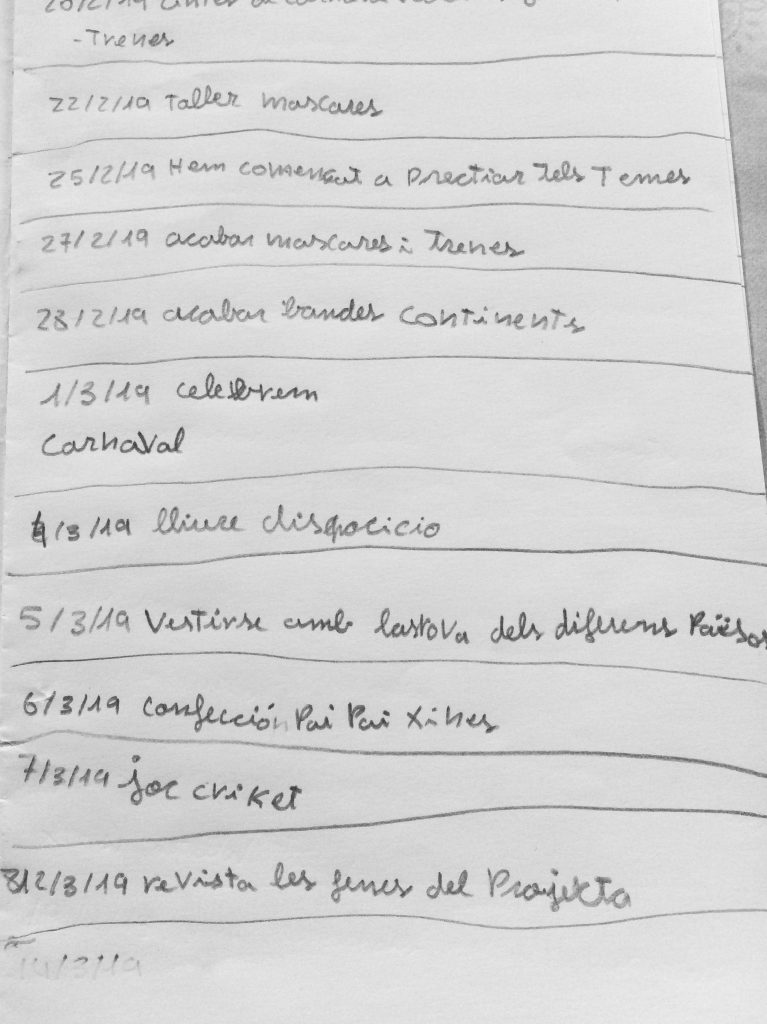 -Trenes
22/2/19 Taller mascares
25/2/19 Hem comensat a Prectiar Tels Temes
27/2/19 acabar mascares i Trenes
28/2/19 acabar bandes Continents
1/3/19 celebrem
Carnaval
4/3/19 lliure dispocicio
5/3/19 Vestirse amb lastova dels diferens Països
6/3/19 confección Pai Pai Xines
7/3/19 joc criket
12/3/19 revista les fenes del Projecta
14/3/19